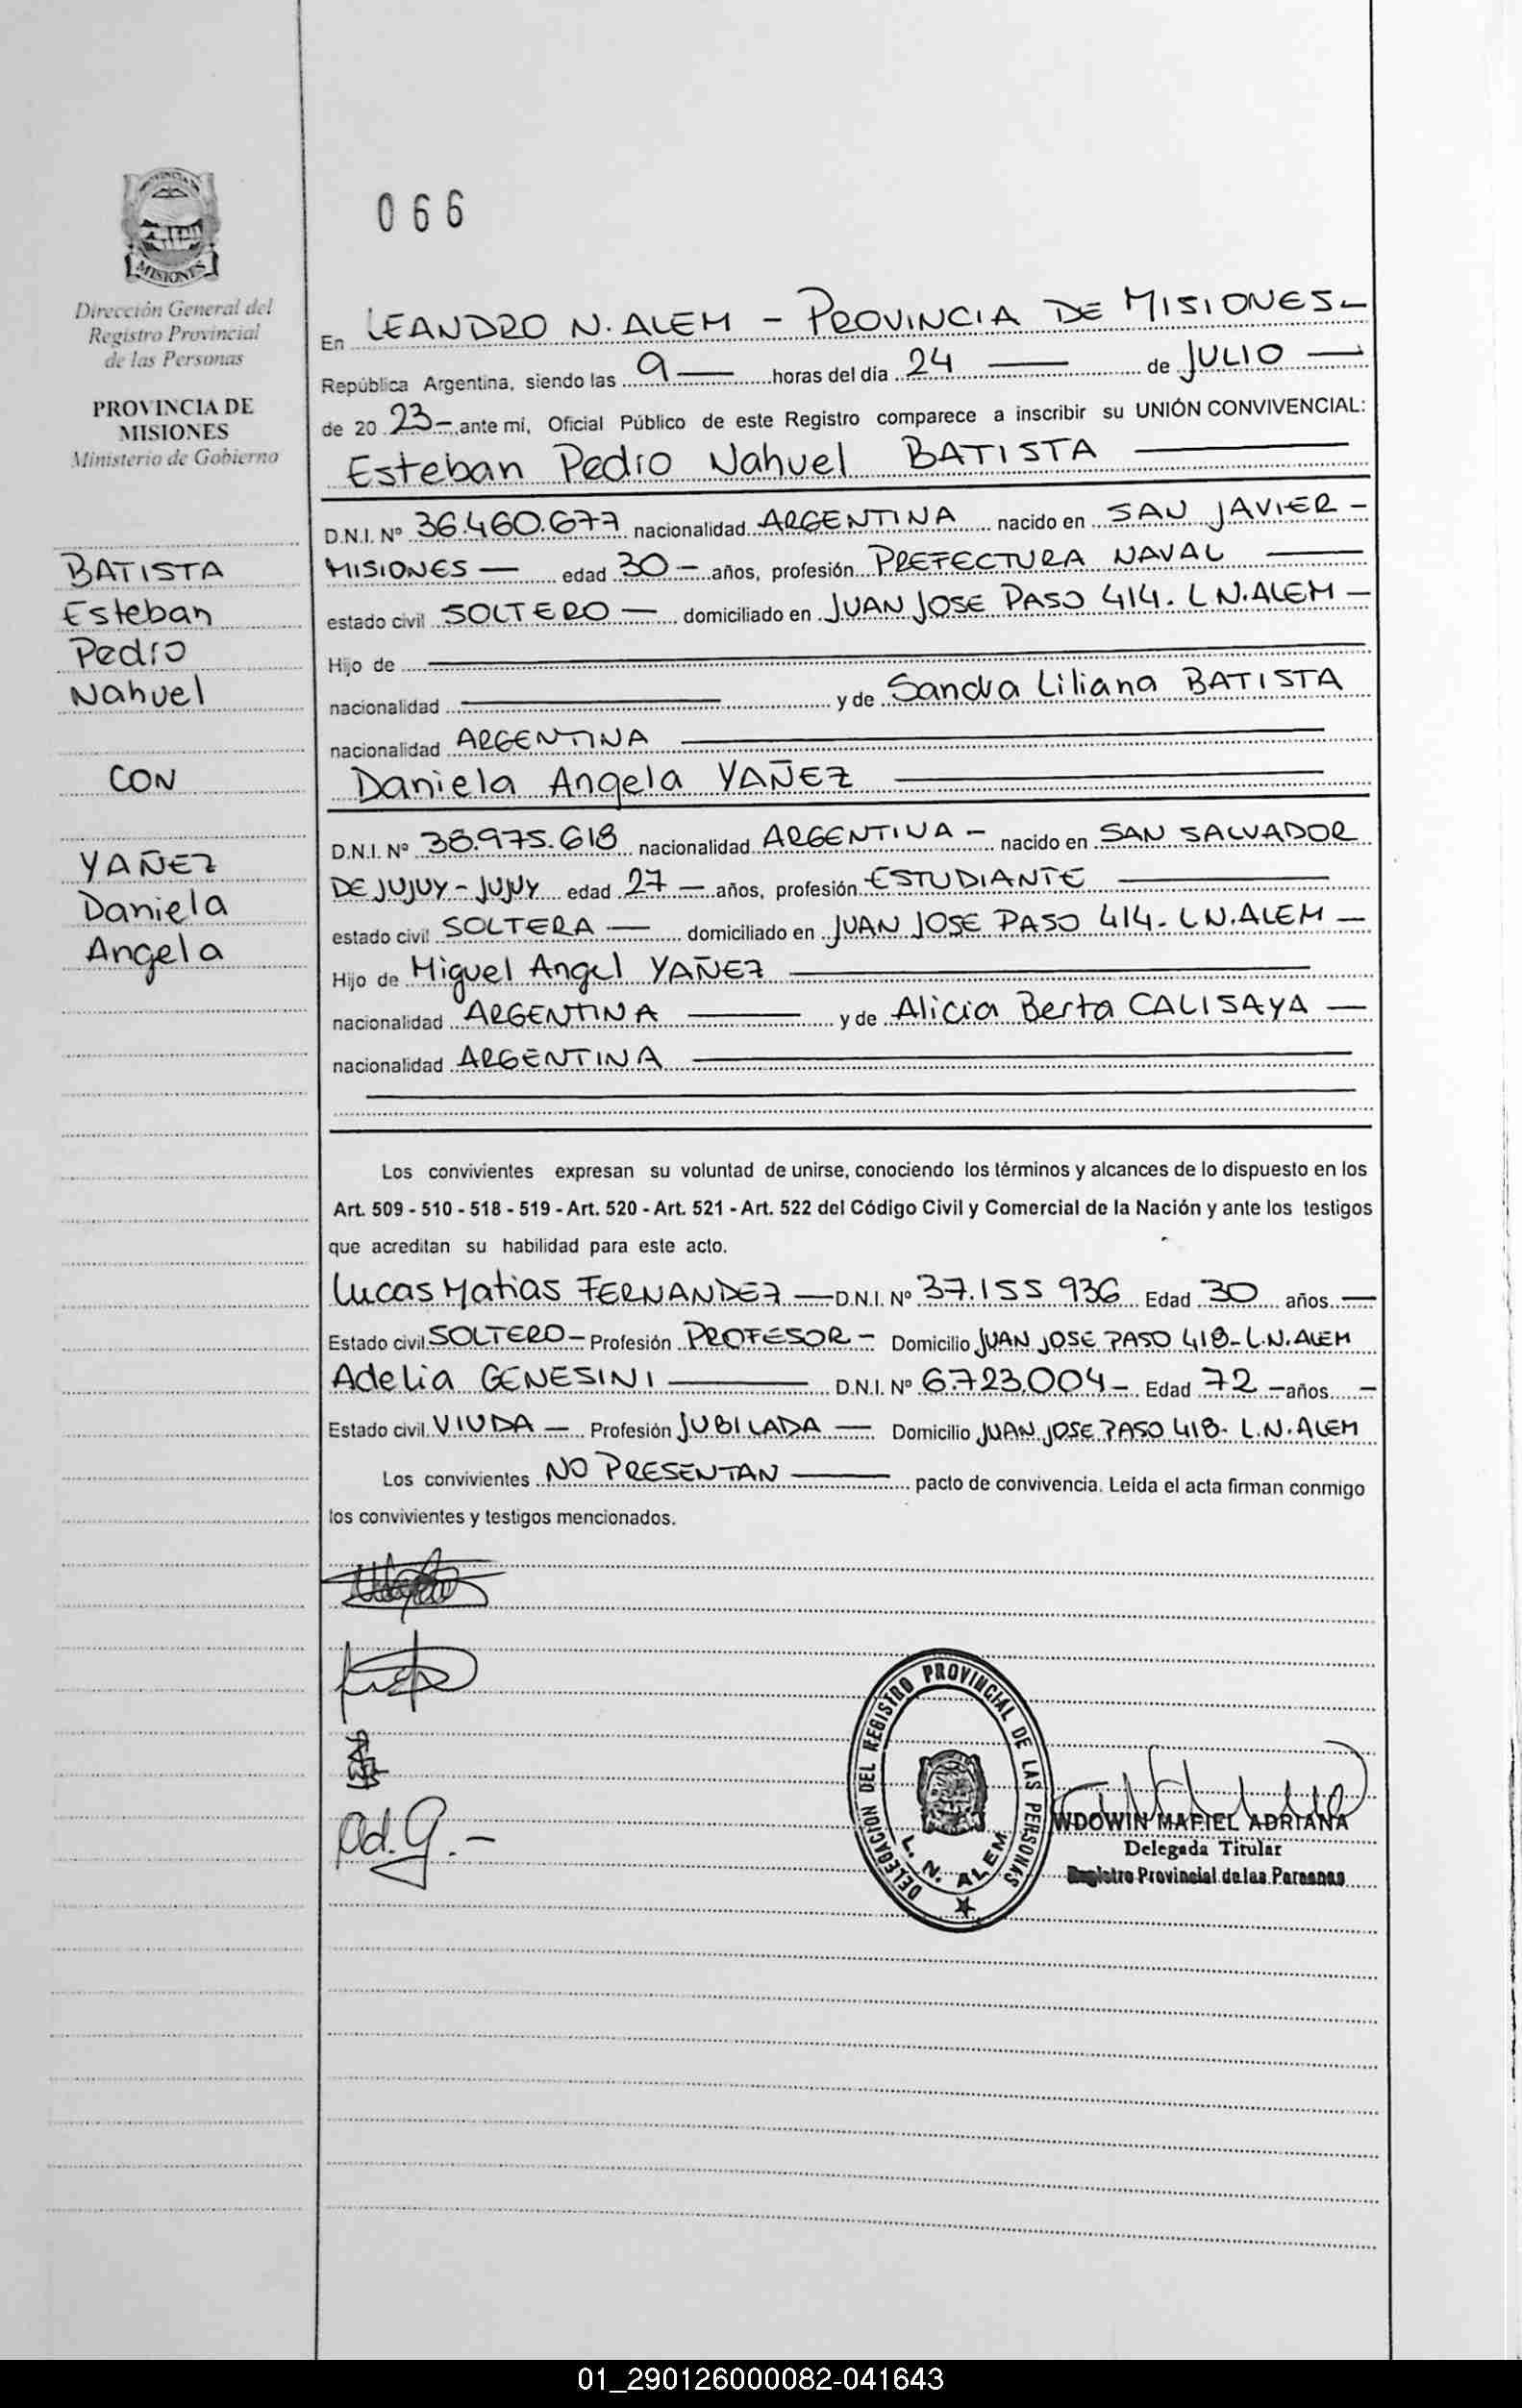 PROVINCIA DE
MISIONES
Dirección General del
Registro Provincial
de las Personas
PROVINCIA DE
MISIONES
Ministerio de Gobierno
BATISTA
Esteban
Pedro
Nahuel
CON
YAÑEZ
Daniela
Angela
066
En LEANDRO N. ALEM - PROVINCIA DE MISIONES-
República Argentina, siendo las 9 — horas del día 24 — de JULIO —
de 20 23- ante mí, Oficial Público de este Registro comparece a inscribir su UNIÓN CONVIVENCIAL:
Esteban Pedro Nahuel BATISTA —
D.N.I. Nº 36.460.677 nacionalidad ARGENTINA nacido en SAN JAVIER -
MISIONES — edad 30 - años, profesión PREFECTURA NAVAL —
estado civil SOLTERO — domiciliado en JUAN JOSE PASO 414. L N.ALEM -
Hijo de —
nacionalidad — y de Sandra Liliana BATISTA
nacionalidad ARGENTINA —
Daniela Angela YAÑEZ —
D.N.I. Nº 38.975.618 nacionalidad ARGENTINA - nacido en SAN SALVADOR
DE JUJUY - JUJUY edad 27 - años, profesión ESTUDIANTE —
estado civil SOLTERA — domiciliado en JUAN JOSE PASO 414- L N.ALEM -
Hijo de Miguel Angel YAÑEZ —
nacionalidad ARGENTINA — y de Alicia Berta CALISAYA —
nacionalidad ARGENTINA —
Los convivientes expresan su voluntad de unirse, conociendo los términos y alcances de lo dispuesto en los
Art. 509 - 510 - 518 - 519 - Art. 520 - Art. 521 - Art. 522 del Código Civil y Comercial de la Nación y ante los testigos
que acreditan su habilidad para este acto.
Lucas Matias FERNANDEZ — D.N.I. Nº 37.155 936 Edad 30 años. —
Estado civil SOLTERO - Profesión PROFESOR - Domicilio JUAN JOSE PASO 418- L.N. ALEM
Adelia GENESINI — D.N.I. Nº 6.723.004 - Edad 72 - años -
Estado civil VIUDA — Profesión JUBILADA — Domicilio JUAN JOSE PASO 418- L.N. ALEM
Los convivientes NO PRESENTAN — pacto de convivencia. Leída el acta firman conmigo
los convivientes y testigos mencionados.
Ad. G. -
DELEGACION DEL REGISTRO PROVINCIAL DE LAS PERSONAS
L. N. ALEM
WDOWIN MARIEL ADRIANA
Delegada Titular
Registro Provincial de las Personas
01_290126000082-041643